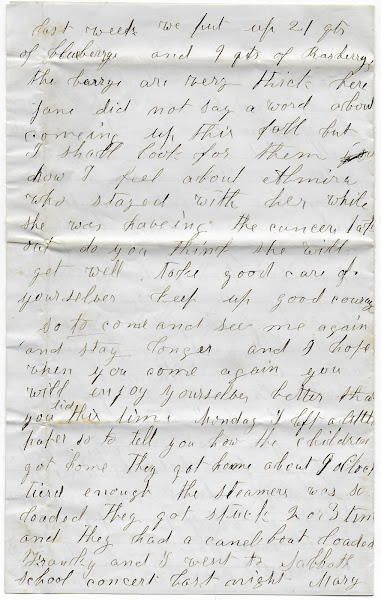 last week we put up 21 qts
of blueberrys and 9 qts of Rasberrys
the berrys are very thick here
Jane did not say a word about
comeing up this fall but
I shall look for them
how I feel about Almira
who stayed with her while
she was haveing the cancer
out do you think she will
get well take good care of
yourselves keep up good courage
so to come and see me again
and stay longer and I hope
when you come again you
will enjoy yourselves better than
you did this time Sunday I left a little
paper so to tell you how the children
got home they got home about 9 oclock
tired enough the steamers was so
loaded they got stuck 2 or 3 times
and they had a canel boat loaded
Franky and I went to Sabbath
school concert last night Mary